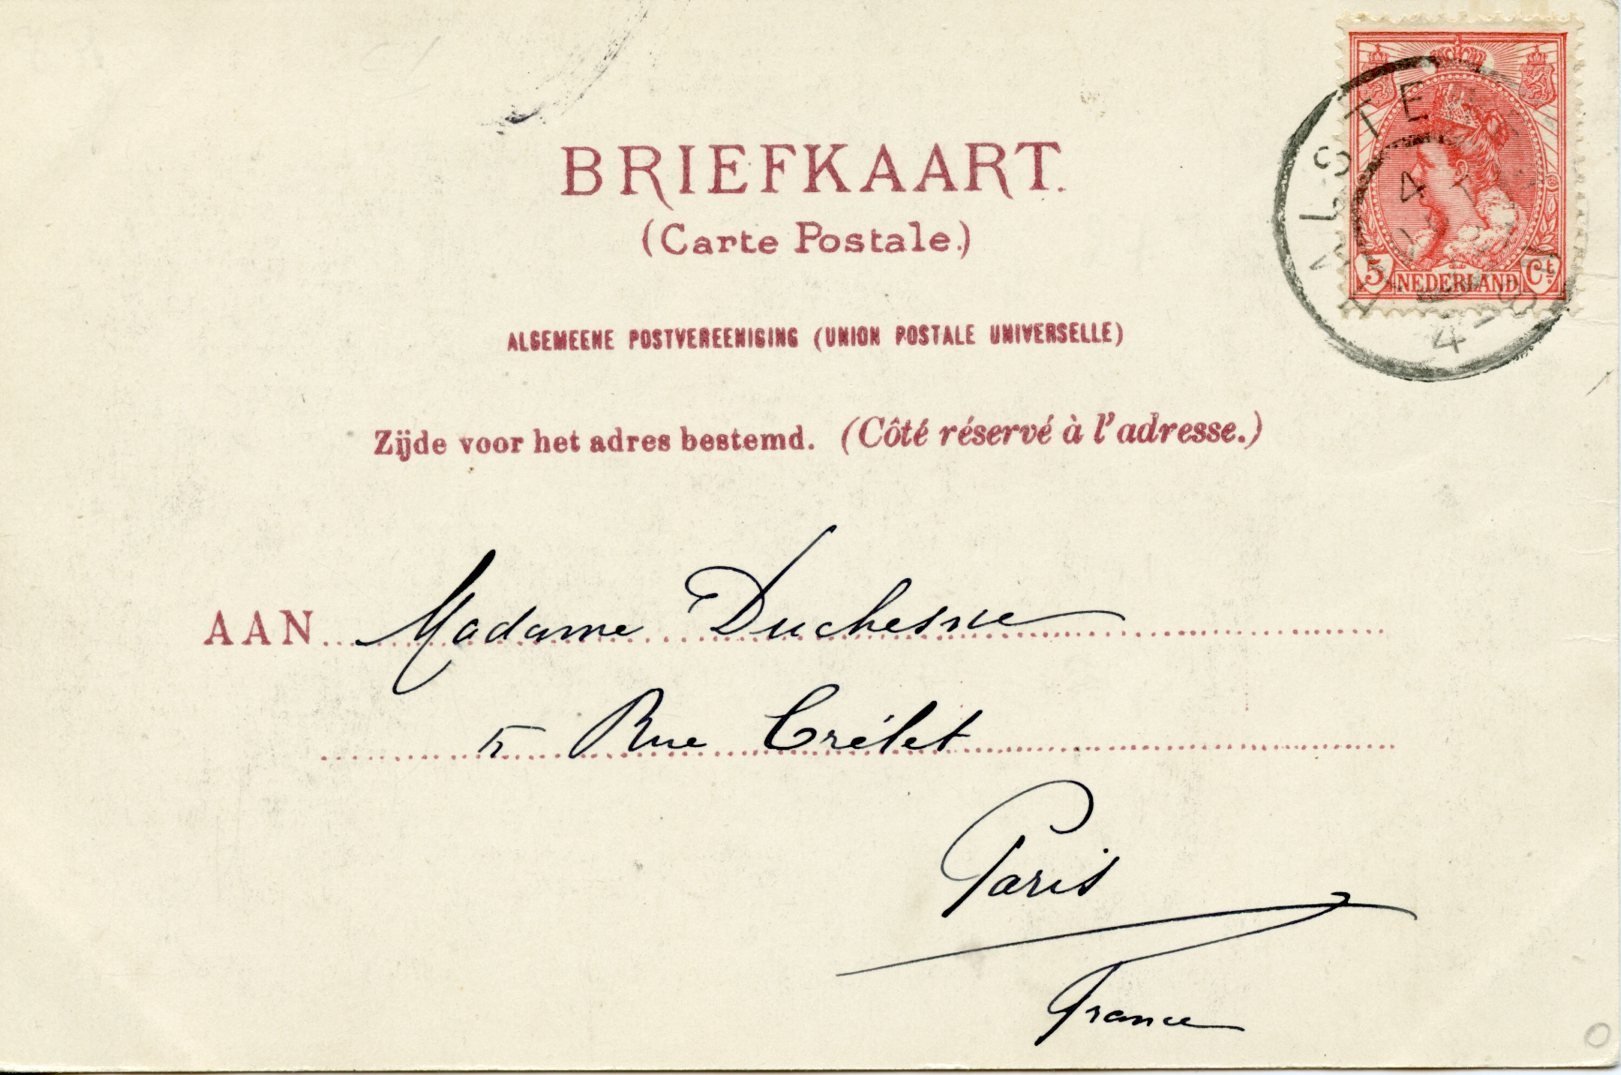 BRIEFKAART.
(Carte Postale.)
ALGEMEENE POSTVEREENIGING (UNION POSTALE UNIVERSELLE)
Zijde voor het adres bestemd. (Côté réservé à l'adresse.)
AAN Madame Duchesne
5 Rue Crélet
Paris
France
5 NEDERLAND Ct